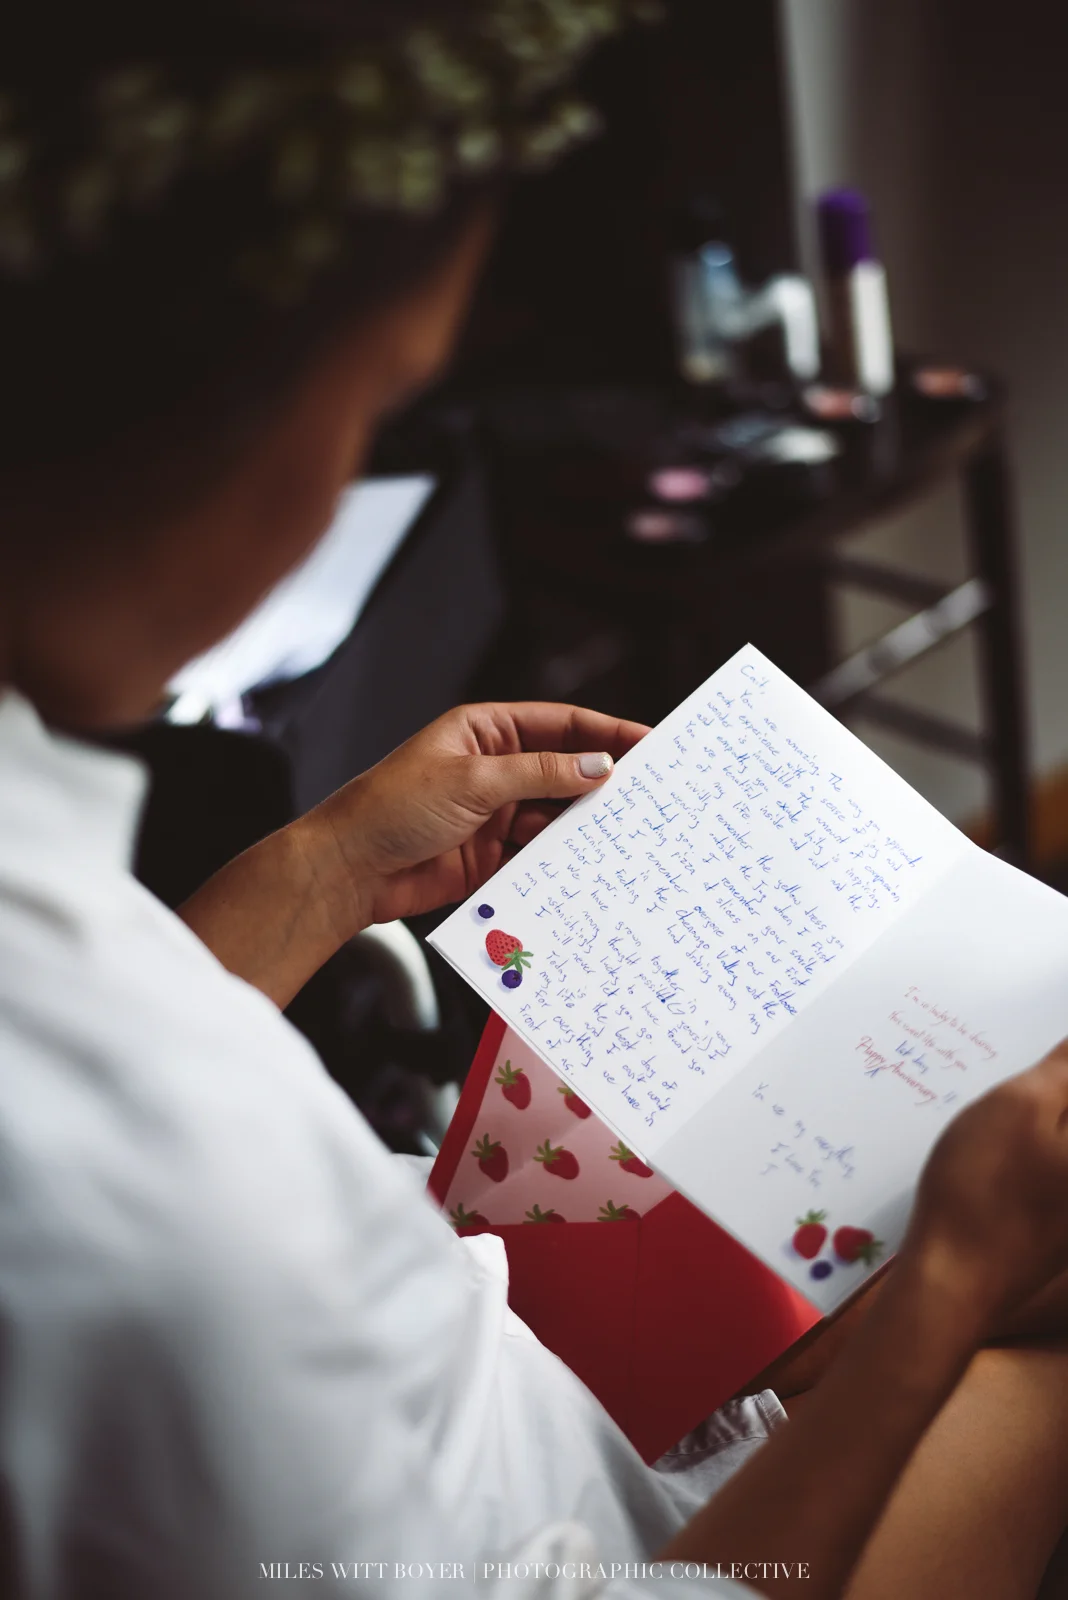 Cait,
You are amazing. The way you approach
each experience with a sense of joy and
wonder is incredible the amount of compassion
and empathy you exude daily is inspiring.
You are beautiful inside and out and the
love of my life.
I vividly remember the yellow dress you
were wearing outside the Inn when I first
approached you. I remember your smile
when eating pizza slices on our first
date. I remember everyone of our
adventures in the Chenango Valley and the
burning feeling I had driving away my
senior year.
We have grown together in a way
that not many thought possible. I
am astonishingly lucky to have found you
and I will never let you go.
Today is the best day of
my life and I can't wait
for everything we have in
front of us.
I'm so lucky to be sharing
this sweet life with you
Happy Anniversary!
You are my everything
I love you
I
MILES WITT BOYER | PHOTOGRAPHIC COLLECTIVE